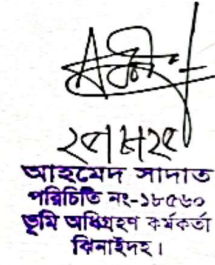 আহমেদ সাদাত
পরিচিতি নং-১৮৫৬০
ভূমি অধিগ্রহণ কর্মকর্তা
ঝিনাইদহ।